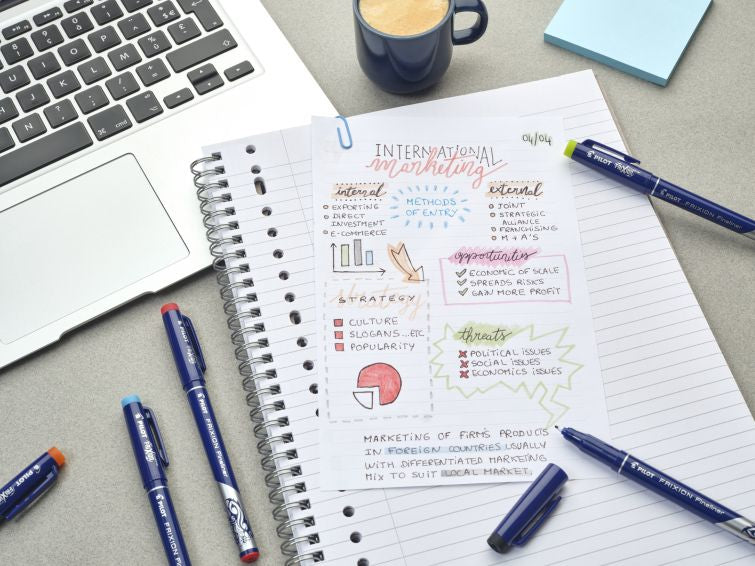 INTERNATIONAL
04/04
marketing
internal
EXPORTING
DIRECT
INVESTMENT
E-COMMERCE
METHODS
OF ENTRY
external
JOINT
STRATEGIC
ALLIANCE
FRANCHISING
M+A'S
opportunities
ECONOMIC OF SCALE
SPREADS RISKS
GAIN MORE PROFIT
STRATEGY
CULTURE
SLOGANS...ETC
POPULARITY
threats
POLITICAL ISSUES
SOCIAL ISSUES
ECONOMICS ISSUES
MARKETING OF FIRMS PRODUCTS
IN FOREIGN COUNTRIES USUALLY
WITH DIFFERENTIATED MARKETING
MIX TO SUIT LOCAL MARKET.
PILOT FRIXION Fineliner
PILOT FRIXION Fineliner
PILOT FRIXION Fineliner
PILOT FRIXION